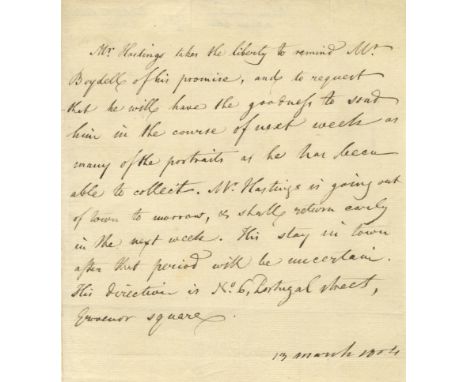 Mr. Hastings takes the liberty to remind Mr.
Boydell of his promise, and to request
that he will have the goodness to send
him in the course of next week as
many of the portraits as he has been
able to collect. Mr. Hastings is going out
of town to morrow, & shall return early
in the next week. His stay in town
after that period will be uncertain.
His direction is No. 6, Portugal street,
Grosvenor square.
13 March 1804